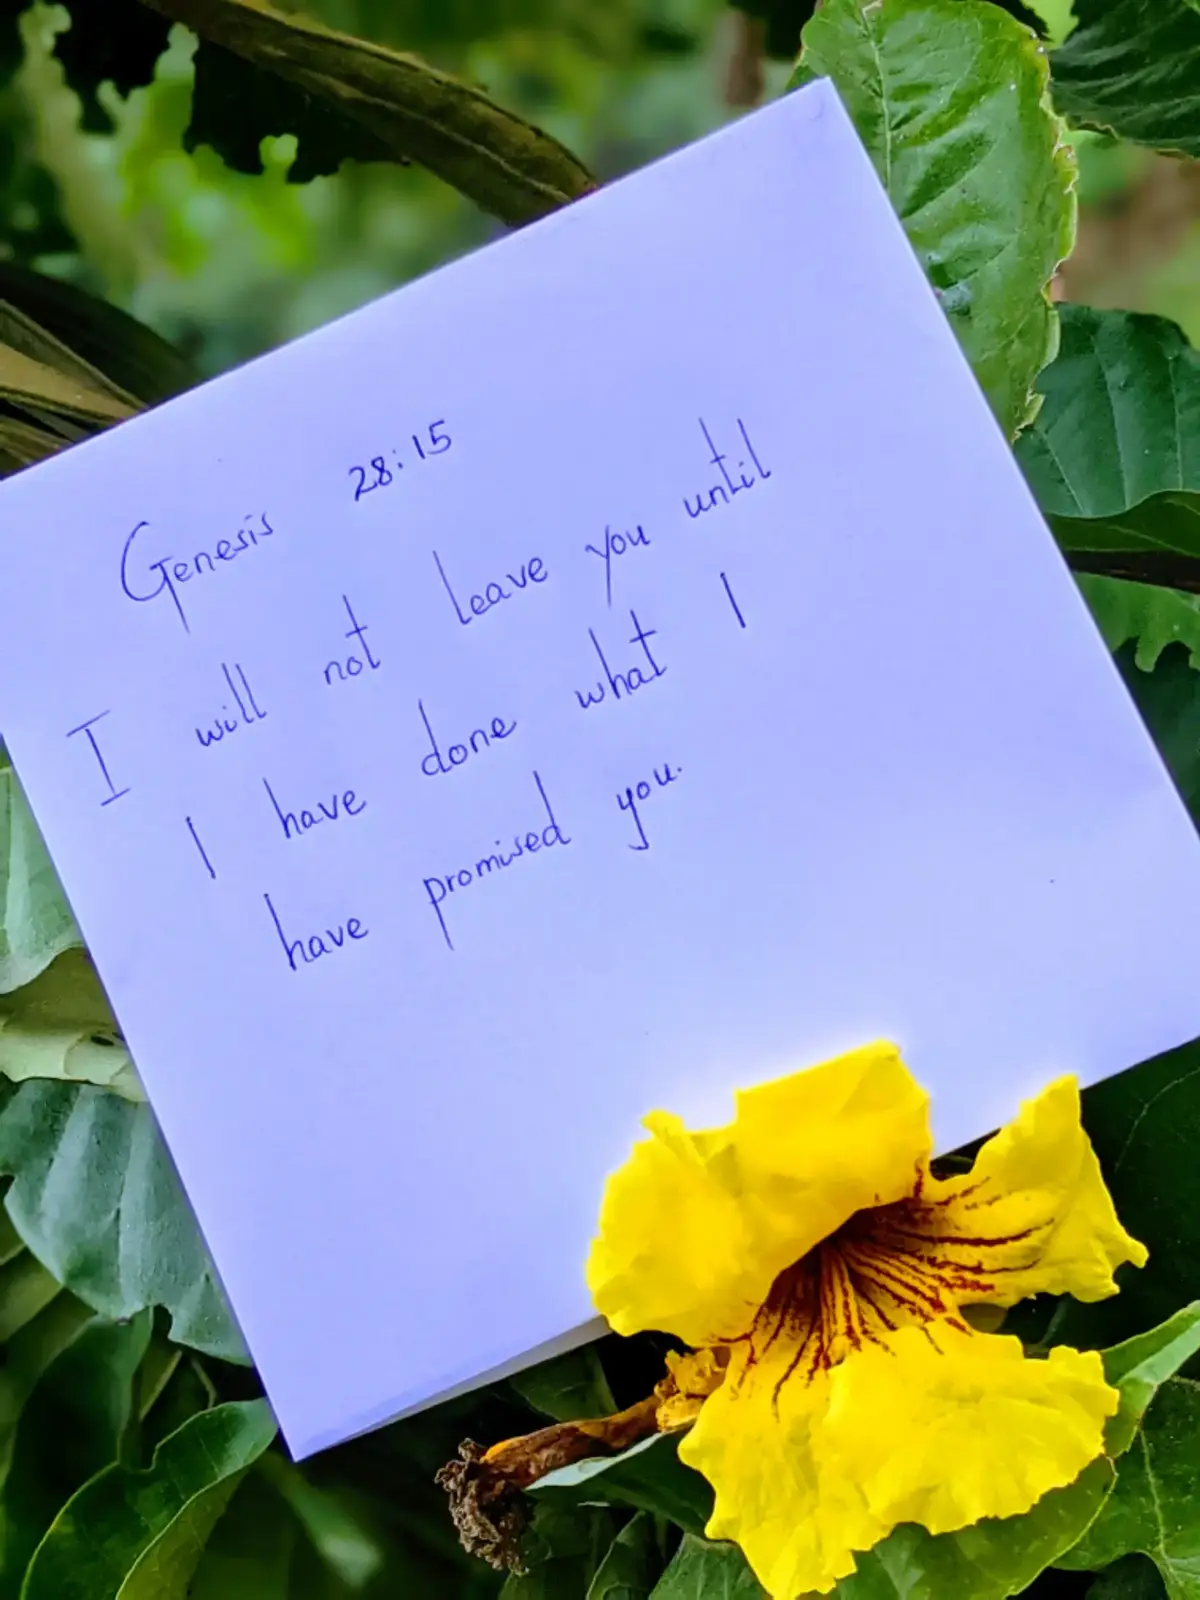 Genesis 28:15
I will not leave you until
I have done what I
have promised you.